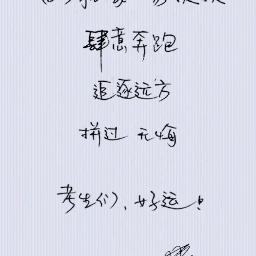 肆意奔跑
追逐远方
拼过 无悔
考生们、好运！